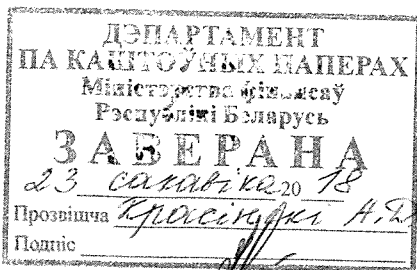 ДЭПАРТАМЕНТ
ПА КАШТОЎНЫХ ПАПЕРАХ
Міністэрства фінансаў
Рэспублікі Беларусь
ЗАВЕРАНА
23 сакавіка 20 18
Прозвішча А.Д
Подпіс